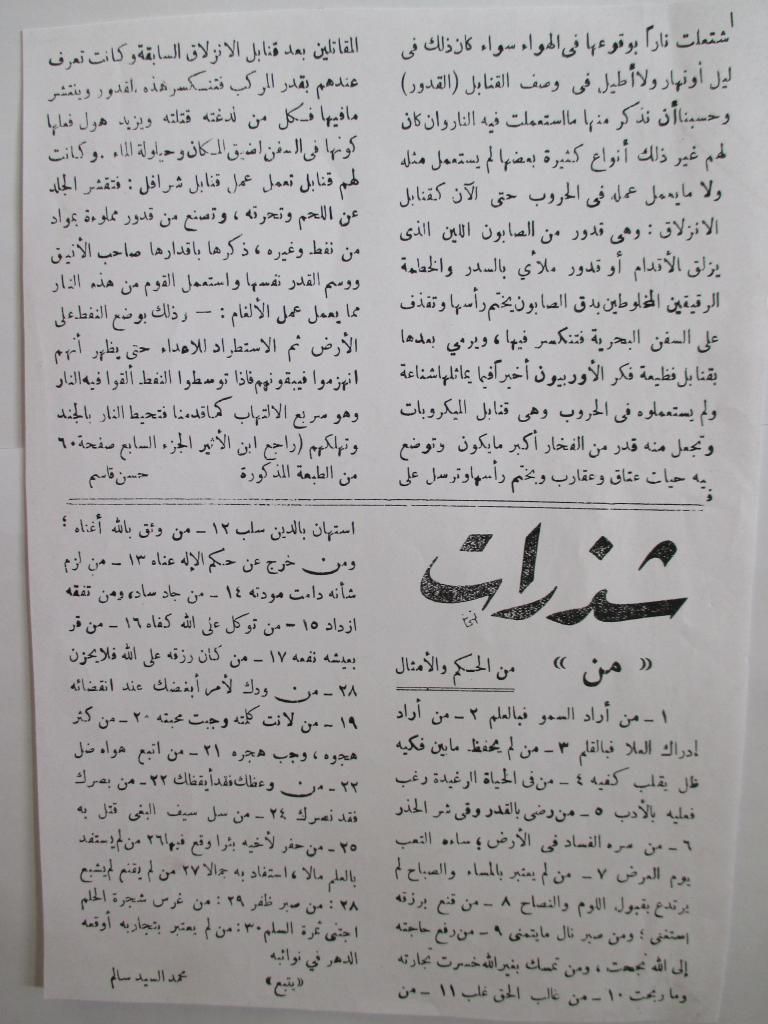 اشتعلت ناراً بوقوعها فى الهواء سواء كان ذلك فى
ليل أونهار ولا أطيل فى وصف القنابل (القدور)
وحسبنا أن نذكر منها ما استعملت فيه النار وان كان
لهم غير ذلك أنواع كثيرة بعضها لم يستعمل مثله
ولا ما يعمل عمله فى الحروب حتى الآن كقنابل
الانزلاق : وهى قدور من الصابون اللين الذى
يزلق الأقدام أو قدور ملأي بالسدر والخطمة
الرقيقين المخلوطين بدق الصابون يختم رأسها وتقذف
على السفن البحرية فتنكسر فيها ، ويرمي بعدها
بقنابل فظيعة فكر الأوربيون أخيراً فيما يماثلها شناعة
ولم يستعملوه فى الحروب وهى قنابل الميكروبات
وتجعل منه قدر من الفخار أكبر مايكون وتوضع
فيه حيات عتاق وعقارب ويختم رأسها وترسل على
المقاتلين بعد قنابل الانزلاق السابقة وكانت تعرف
عندهم بقدر المركب فتنكسر هذه القدور وينتشر
مافيها فكل من لدغته قتلته ويزيد هول فعلها
كونها فى السفن لضيق المكان وحيلولة الماء . وكانت
لهم قنابل تعمل عمل قنابل شرافل : فتقشر الجلد
عن اللحم وتحرقه ، وتصنع من قدور مملوءة بمواد
من نفط وغيره ، ذكرها باقدارها صاحب الأنيق
ووسم القدر نفسها واستعمل القوم من هذه النار
مما يعمل عمل الألغام : — وذلك بوضع النفط على
الأرض ثم الاستطراد للاعداء حتى يظهر أنهم
انهزموا فيبقونهم فاذا توسطوا النفط ألقوا فيه النار
وهو سريع الالتهاب كما قدمنا فتحيط النار بالجند
وتهلكهم (راجع ابن الأثير الجزء السابع صفحة ٦٠
من الطبعة المذكورة حسن قاسم
شذرات
« من » من الحكم والأمثال
١ – من أراد السمو فبالعلم ٢ – من أراد
إدراك العلا فبالقلم ٣ – من لم يحفظ ما بين فكيه
ظل يقلب كفيه ٤ – من فى الحياة الرغيدة رغب
فعليه بالأدب ٥ – من رضى بالقدر وقى شر الحذر
٦ – من سره الفساد فى الأرض ؛ ساءه التعب
يوم العرض ٧ – من لم يعتبر بالمساء والصباح لم
يرتدع بقبول اللوم والنصاح ٨ – من قنع برزقه
استغنى ؛ ومن صبر نال مايتمنى ٩ – من رفع حاجته
إلى الله نجحت ، ومن تمسك بغير الله خسرت تجارته
وما ربحت ١٠ – من غالب الحق غلب ١١ – من
استهان بالدين سلب ١٢ – من وثق بالله أغناه ؛
ومن خرج عن حكم الإله عناه ١٣ – من لزم
شأنه دامت مودته ١٤ – من جاد ساد، ومن تفقه
ازداد ١٥ – من توكل على الله كفاه ١٦ – من قر
بعيشه نفعه ١٧ – من كان رزقه على الله فلا يحزن
٢٨ – من ودك لأمر أبغضك عند انقضائه
١٩ – من لانت كلمته وجبت محبته ٢٠ – من كثر
هجوه ، وجب هجره ٢١ – من اتبع هواه ضل
٢٢ – من وعظك فقد أيقظك ٢٢ – من بصرك
فقد نصرك ٢٤ – من سل سيف البغى قتل به
٢٥ – من حفر لأخيه بئرا وقع فيها ٢٦ من لم يستفد
بالعلم مالا ، استفاد به جمالا ٢٧ من لم يقنع لم يشبع
٢٨ : من صبر ظفر ٢٩ : من غرس شجرة الحلم
اجتنى ثمرة السلم ٣٠ : من لم يعتبر بتجاربه أوقعه
الدهر في نوائبه
«يتبع» محمد السيد سالم